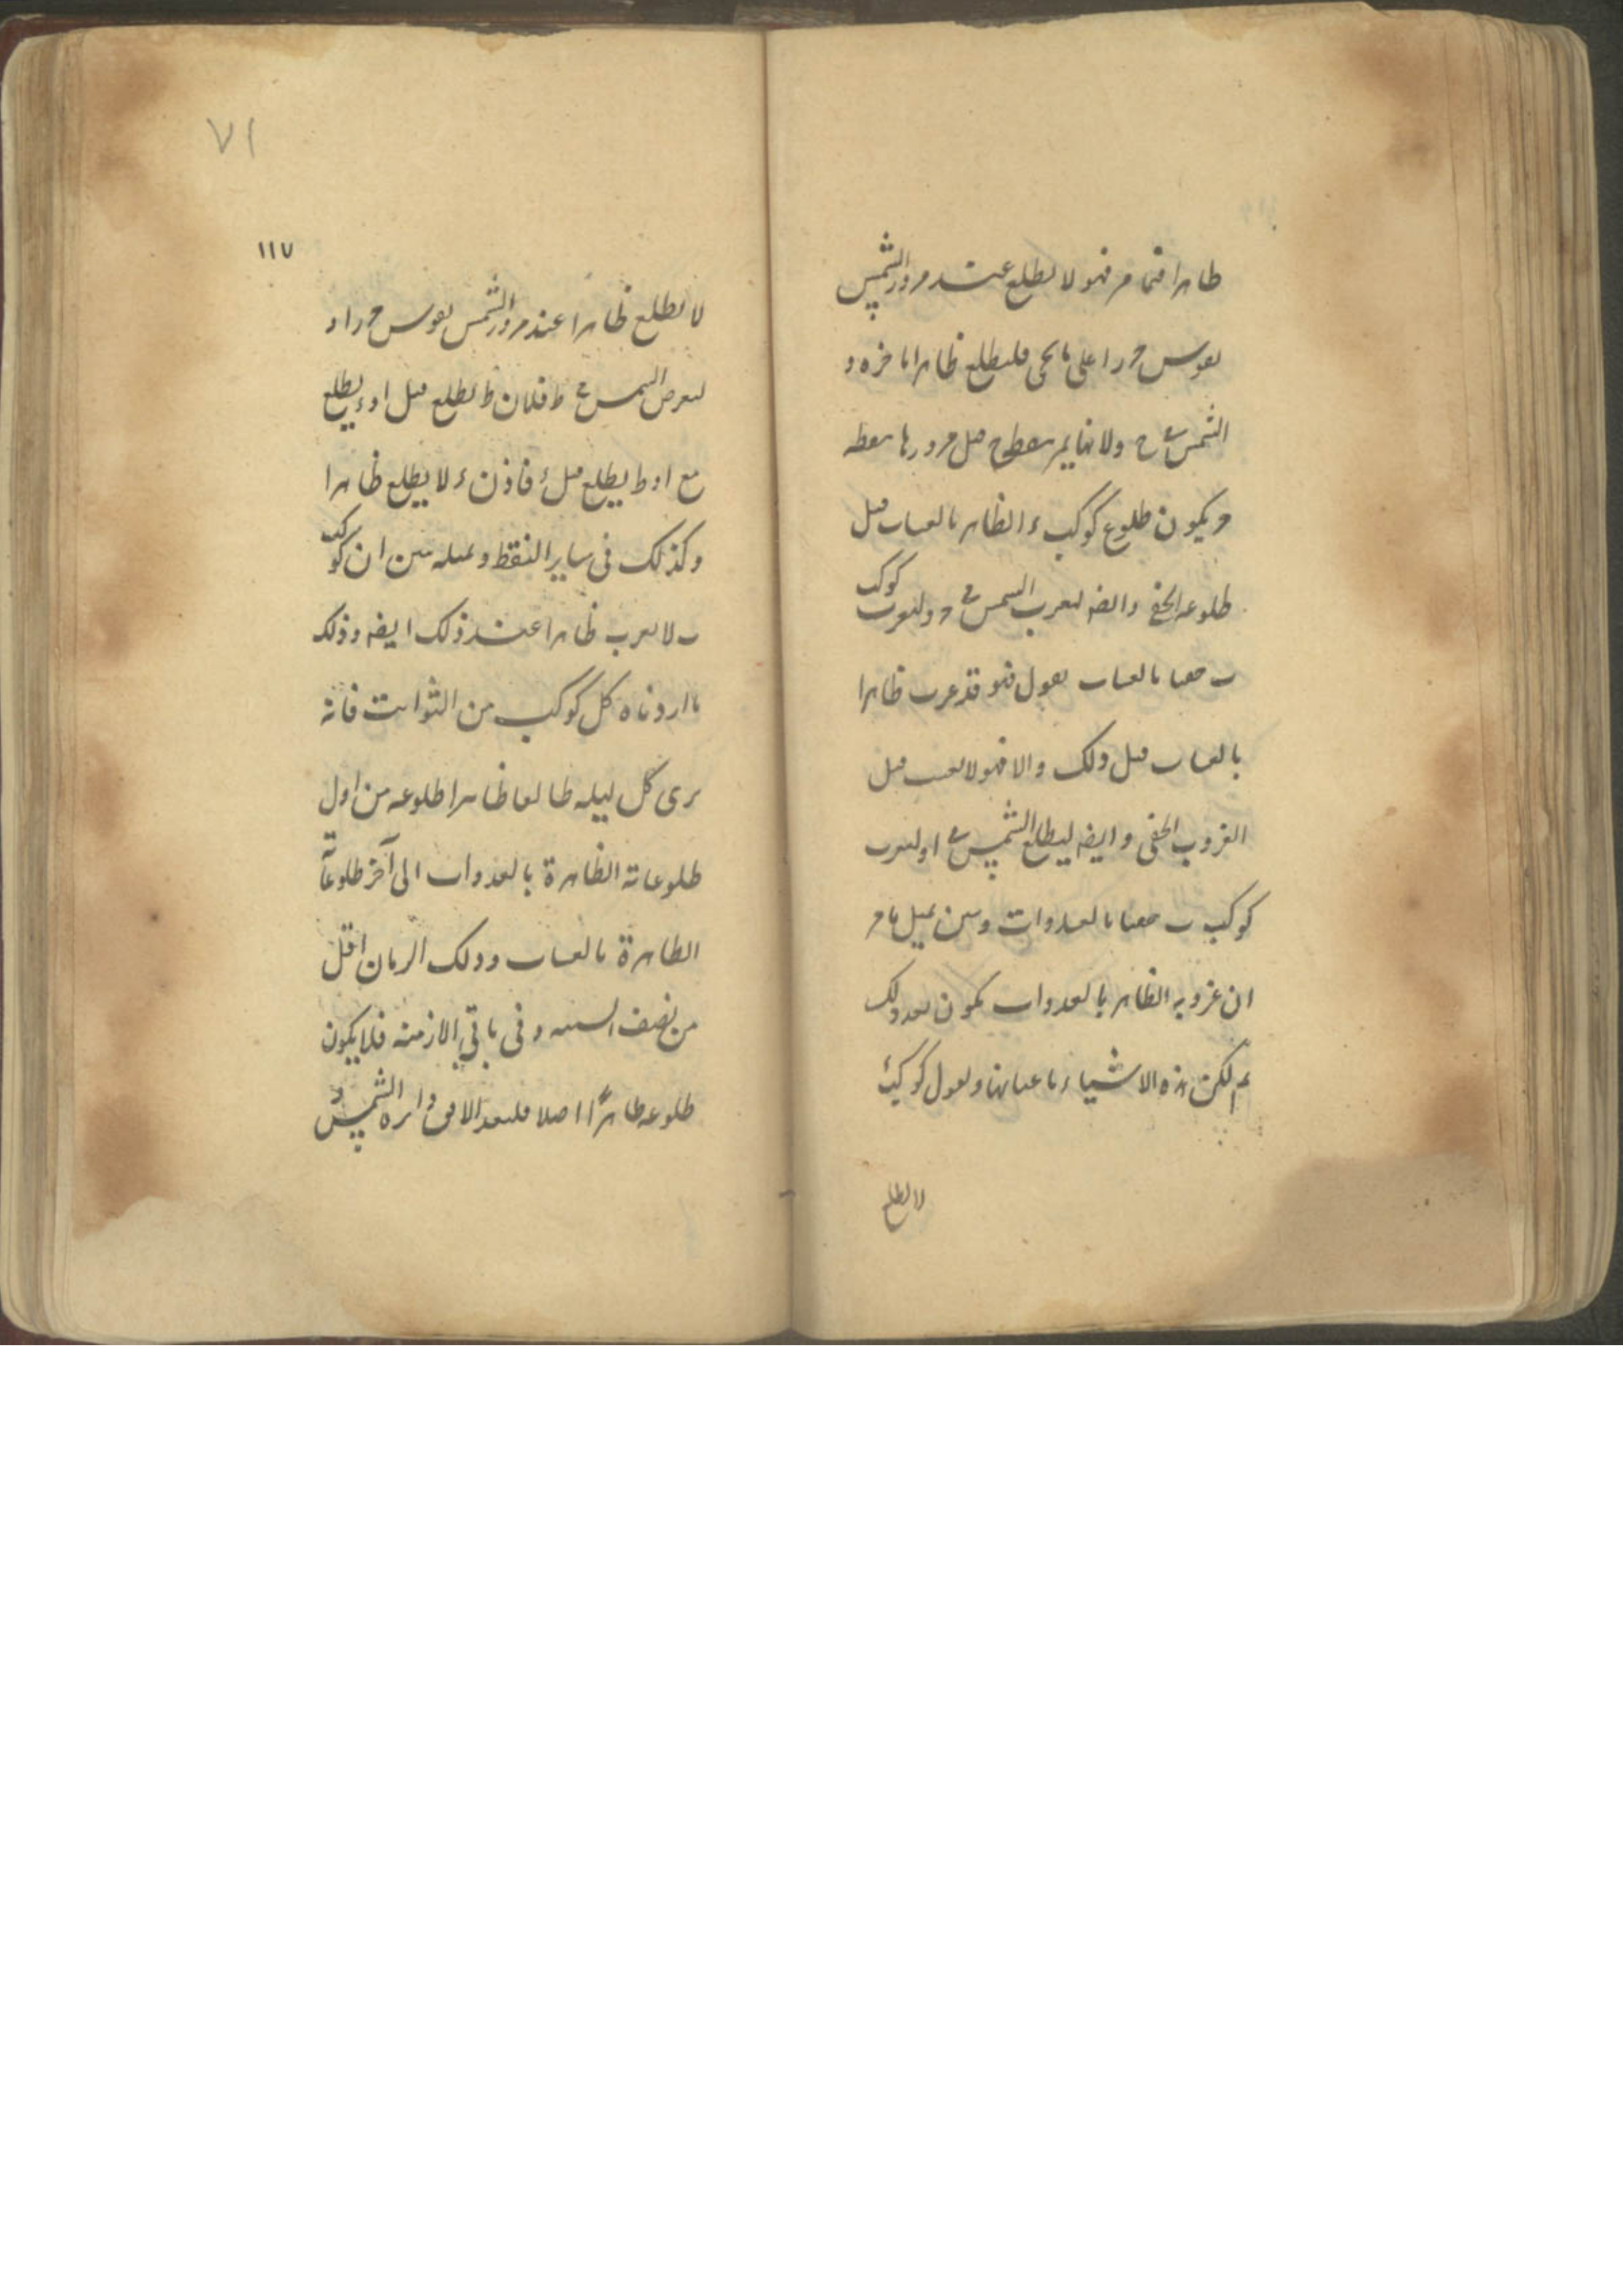 ظاهرا فتمام فهو لا يطلع عند مرور الشمس
بقوس ح را على ما يجى فليطلع ظاهرا باخره و
الشمس فى ح ولانها يمر بنقطة ح قبل مرورها بنقطه
ويكون طلوع كوكب ء الظاهر بالعشيات قبل
طلوعه الخفى وايضه لتغرب الشمس فى د ولتغرب كوكب
ب معها بالعشيات نقول فهو قد غرب ظاهرا
بالعشيات قبل ذلك والا فهو لا يغيب قبل
الغروب الخفى وايضه ليطلع الشمس فى ا وليغرب
كوكب ب معها بالغدوات وبين بمثل ما مر
ان غروبه الظاهر بالغدوات يكون بعد ذلك
ثم لكن هذه الاشياء باعيانها ونقول كوكب ء
لا يطلع
٧١
١١٧
لا يطلع ظاهرا عند مرور الشمس بقوس ح را و
لنعرض الشمس فى ط فلان ط يطلع قبل ا وء يطلع
مع ا و ط يطلع قبل ء فاذن ء لا يطلع ظاهرا
وكذلك فى ساير النقط وبمثله نبين ان كوكب
ب لا يغرب ظاهرا عند ذلك ايضه وذلك
ما اردناه كل كوكب من الثوابت فانه
يرى كل ليله طالعا ظاهرا طلوعه من اول
طلوعاته الظاهرة بالغدوات الى آخر طلوعاته
الظاهرة بالعشيات وذلك الزمان اقل
من نصف السنه وفى باقي الازمنه فلا يكون
طلوعه ظاهرا اصلا فليعد الافق و دايره الشمس